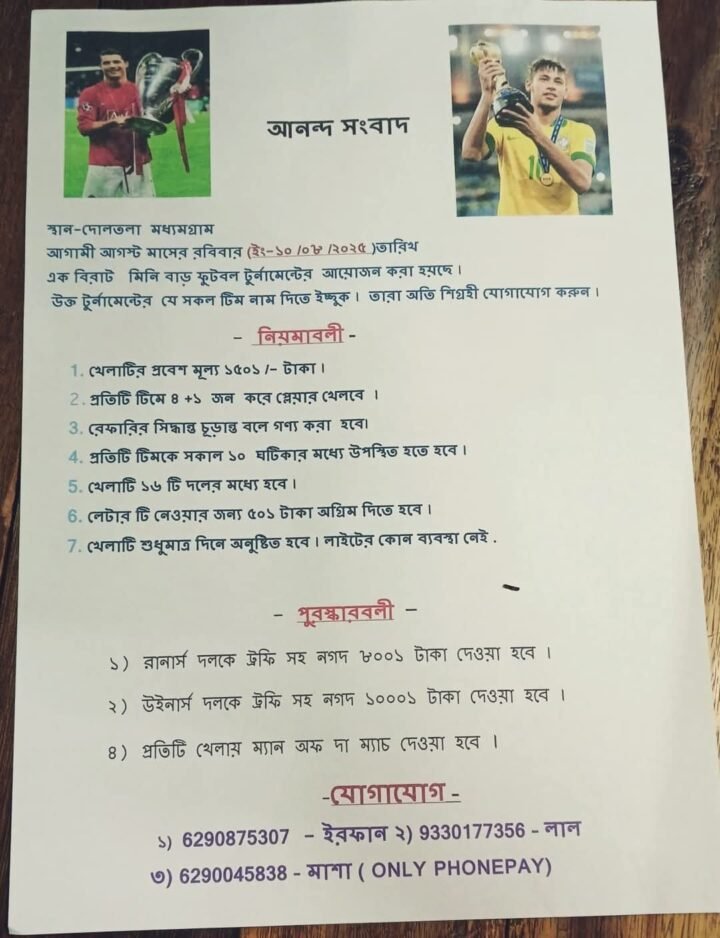 আনন্দ সংবাদ
স্থান-দোলতলা মধ্যমগ্রাম
আগামী আগস্ট মাসের রবিবার (ইং-১০ /০৮ /২০২৫ )তারিখ
এক বিরাট মিনি বাড় ফুটবল টুর্নামেন্টের আয়োজন করা হয়ছে ।
উক্ত টুর্নামেন্টের যে সকল টিম নাম দিতে ইচ্ছুক । তারা অতি শিগ্রহী যোগাযোগ করুন ।
- নিয়মাবলী -
1. খেলাটির প্রবেশ মূল্য ১৫০১ /- টাকা ।
2. প্রতিটি টিমে ৪ +১ জন করে প্লেয়ার খেলবে ।
3. রেফারির সিদ্ধান্ত চূড়ান্ত বলে গণ্য করা হবে।
4. প্রতিটি টিমকে সকাল ১০ ঘটিকার মধ্যে উপস্থিত হতে হবে ।
5. খেলাটি ১৬ টি দলের মধ্যে হবে ।
6. লেটার টি নেওয়ার জন্য ৫০১ টাকা অগ্রিম দিতে হবে ।
7. খেলাটি শুধুমাত্র দিনে অনুষ্ঠিত হবে । লাইটের কোন ব্যবস্থা নেই .
- পুরস্কারবলী -
১) রানার্স দলকে ট্রফি সহ নগদ ৮০০১ টাকা দেওয়া হবে ।
২) উইনার্স দলকে ট্রফি সহ নগদ ১০০০১ টাকা দেওয়া হবে ।
৪) প্রতিটি খেলায় ম্যান অফ দা ম্যাচ দেওয়া হবে ।
-যোগাযোগ -
১) 6290875307 - ইরফান ২) 9330177356 - লাল
৩) 6290045838 - মাশা ( ONLY PHONEPAY)